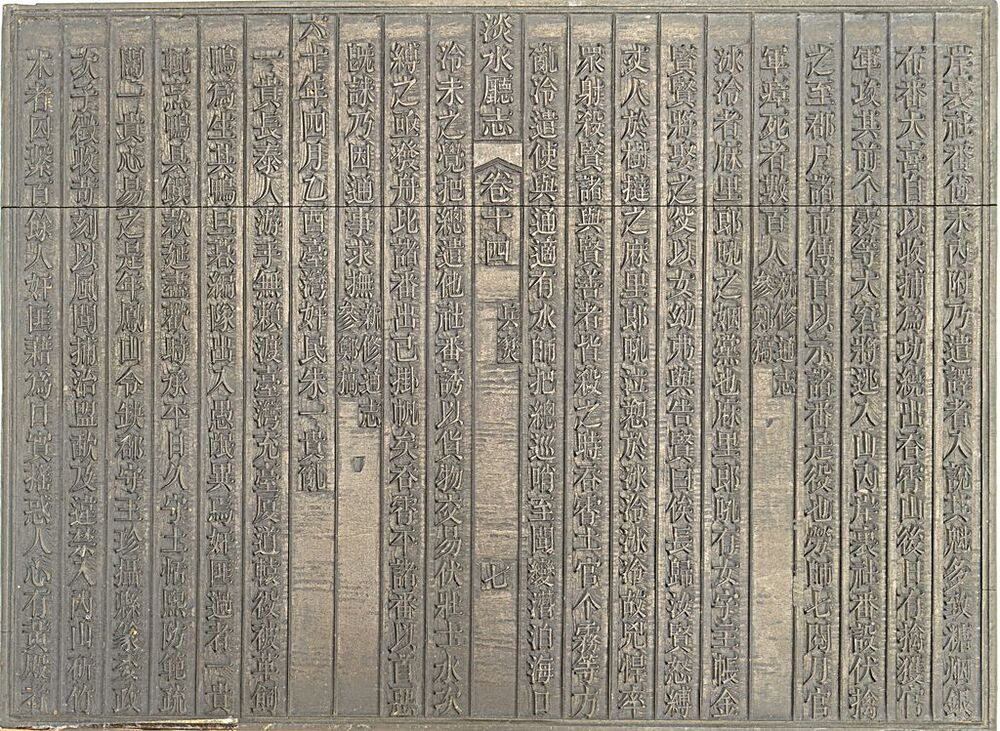 岸裏社番尚未內附乃遣譯者入說其魁多致糖烟銀
布番大喜自以收捕為功繞出吞霄山後日有擒獲官
軍攻其前个霧等大窘將逃入山內岸裏社番設伏擒
之至郡尸諸市傳首以示諸番是役也勞師七閱月官
軍瘴死者數百人新修通志參鄭稿
冰冷者麻里郎吼之姻黨也麻里郎吼有女字主帳金
賢賢將娶之後以女幼弗與告賢曰俟長歸汝賢怒縛
丈人於樹撻之麻里郎吼泣愬於冰冷冰冷故兇悍率
眾射殺賢諸與賢善者皆殺之時吞霄土官个霧等方
亂冷遣使與通適有水師把總巡哨至聞變潛泊海口
淡水廳志 卷十四 兵燹 七
冷未之覺把總遣他社番誘以貨物交易伏壯士水次
縛之亟發舟比諸番出已掛帆矣吞霄不諸番以首惡
旣誅乃因通事求撫新修通志參鄭稿
六十年四月乙酉臺灣奸民朱一貴亂
一貴長泰人游手無賴渡臺灣充臺厦道轅役被革飼
鴨為生其鴨旦暮編隊出入愚氓異焉奸匪過者一貴
輒烹鴨具饌款延盡歡時承平日久守土恬熙防範疏
闊一貴心易之是年鳳山令缺郡守王珍攝縣篆委政
次子徵收苛刻以風聞捕治盟歃及違禁入內山斫竹
木者囚繫百餘人奸匪藉為口實搖惑人心有黃殿者